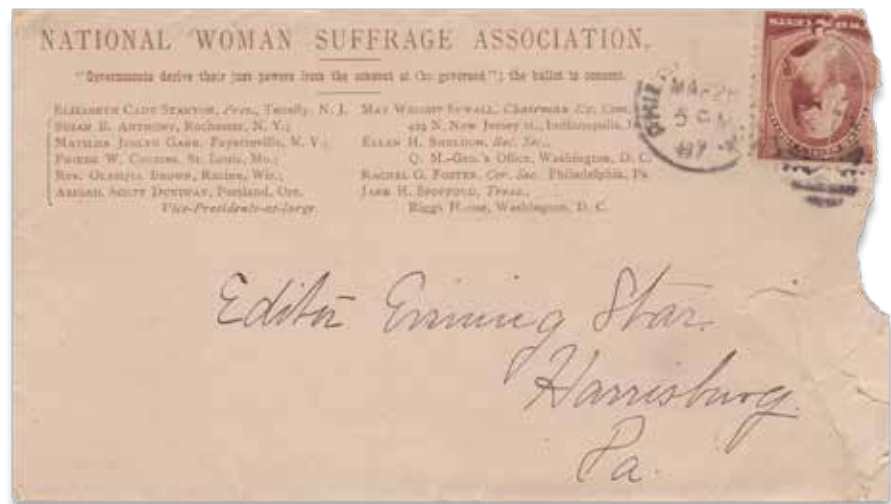 NATIONAL WOMAN SUFFRAGE ASSOCIATION.
"Governments derive their just powers from the consent of the governed"; the ballot is consent.
ELIZABETH CADY STANTON, Pres., Tenafly, N. J.
SUSAN B. ANTHONY, Rochester, N. Y.;
MATILDA JOSLYN GAGE, Fayetteville, N. Y.;
PHOEBE W. COUZINS, St. Louis, Mo.;
REV. OLYMPIA BROWN, Racine, Wis.;
ABIGAIL SCOTT DUNIWAY, Portland, Ore.
Vice-Presidents-at-large.
MAY WRIGHT SEWALL, Chairman Ex. Com.
N. New Jersey st., Indianapolis,
ELLEN H. SHELDON, Rec. Sec.,
Q. M.-Gen.'s Office, Washington, D. C.
RACHEL G. FOSTER, Cor. Sec. Philadelphia, Pa.
JANE H. SPOFFORD, Treas.,
Riggs House, Washington, D. C.
PHIL
MAR 28
Editor Evening Star.
Harrisburg
Pa.